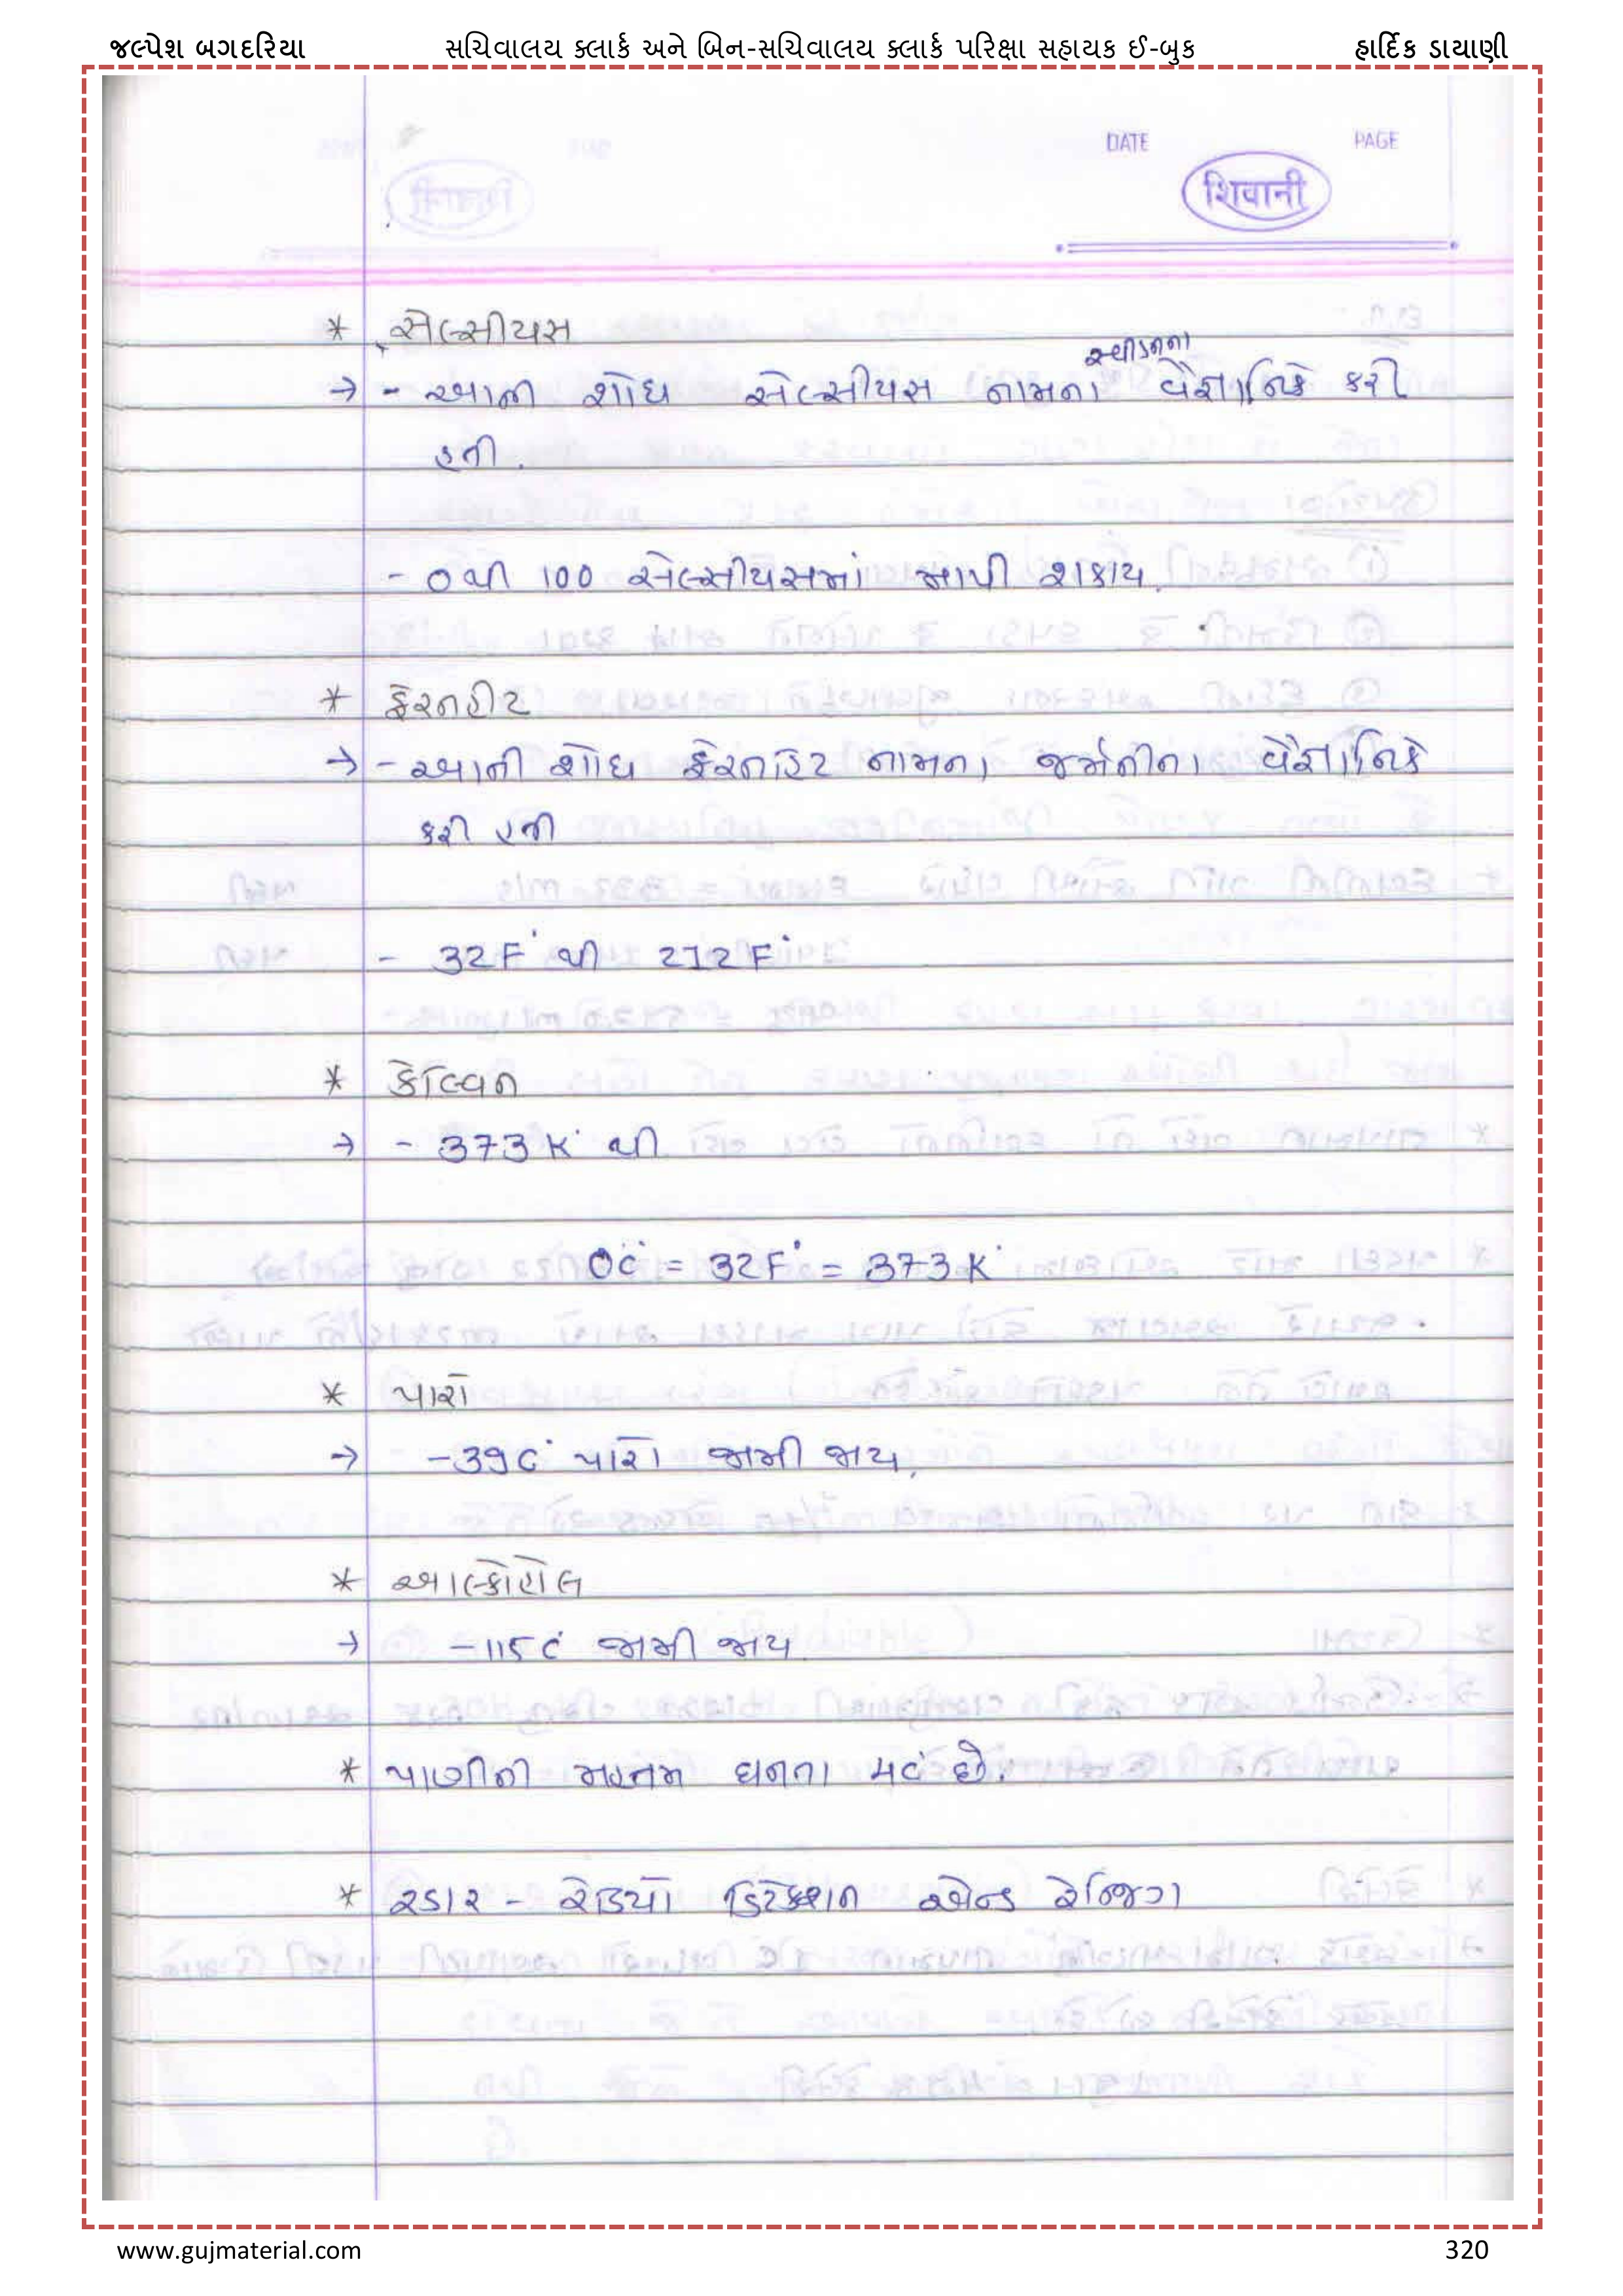 જલ્પેશ બગદરિયા સચિવાલય ક્લાર્ક અને બિન-સચિવાલય ક્લાર્ક પરિક્ષા સહાયક ઈ-બુક હાર્દિક ડાયાણી
DATE PAGE
शिवानी
* સેલ્સીયસ
સ્વીડનના
→ - આની શોધ સેલ્સીયસ નામના વૈજ્ઞાનિકે કરી
હતી.
- 0 થી 100 સેલ્સીયસમાં માપી શકાય.
* ફેરનહીટ
→ - આની શોધ ફેરનહિટ નામના જર્મનીના વૈજ્ઞાનિકે
કરી હતી
- 32F° થી 212F°
* કેલ્વિન
→ - 373K° થી
0C° = 32F° = 373K°
* પારો
→ -39C° પારો જામી જાય.
* આલ્કોહોલ
→ -115C° જામી જાય
* પાણીની મહત્તમ ઘનતા 4C° છે.
* રડાર - રેડિયો ડિટેક્શન એન્ડ રેન્જિગ
www.gujmaterial.com 320